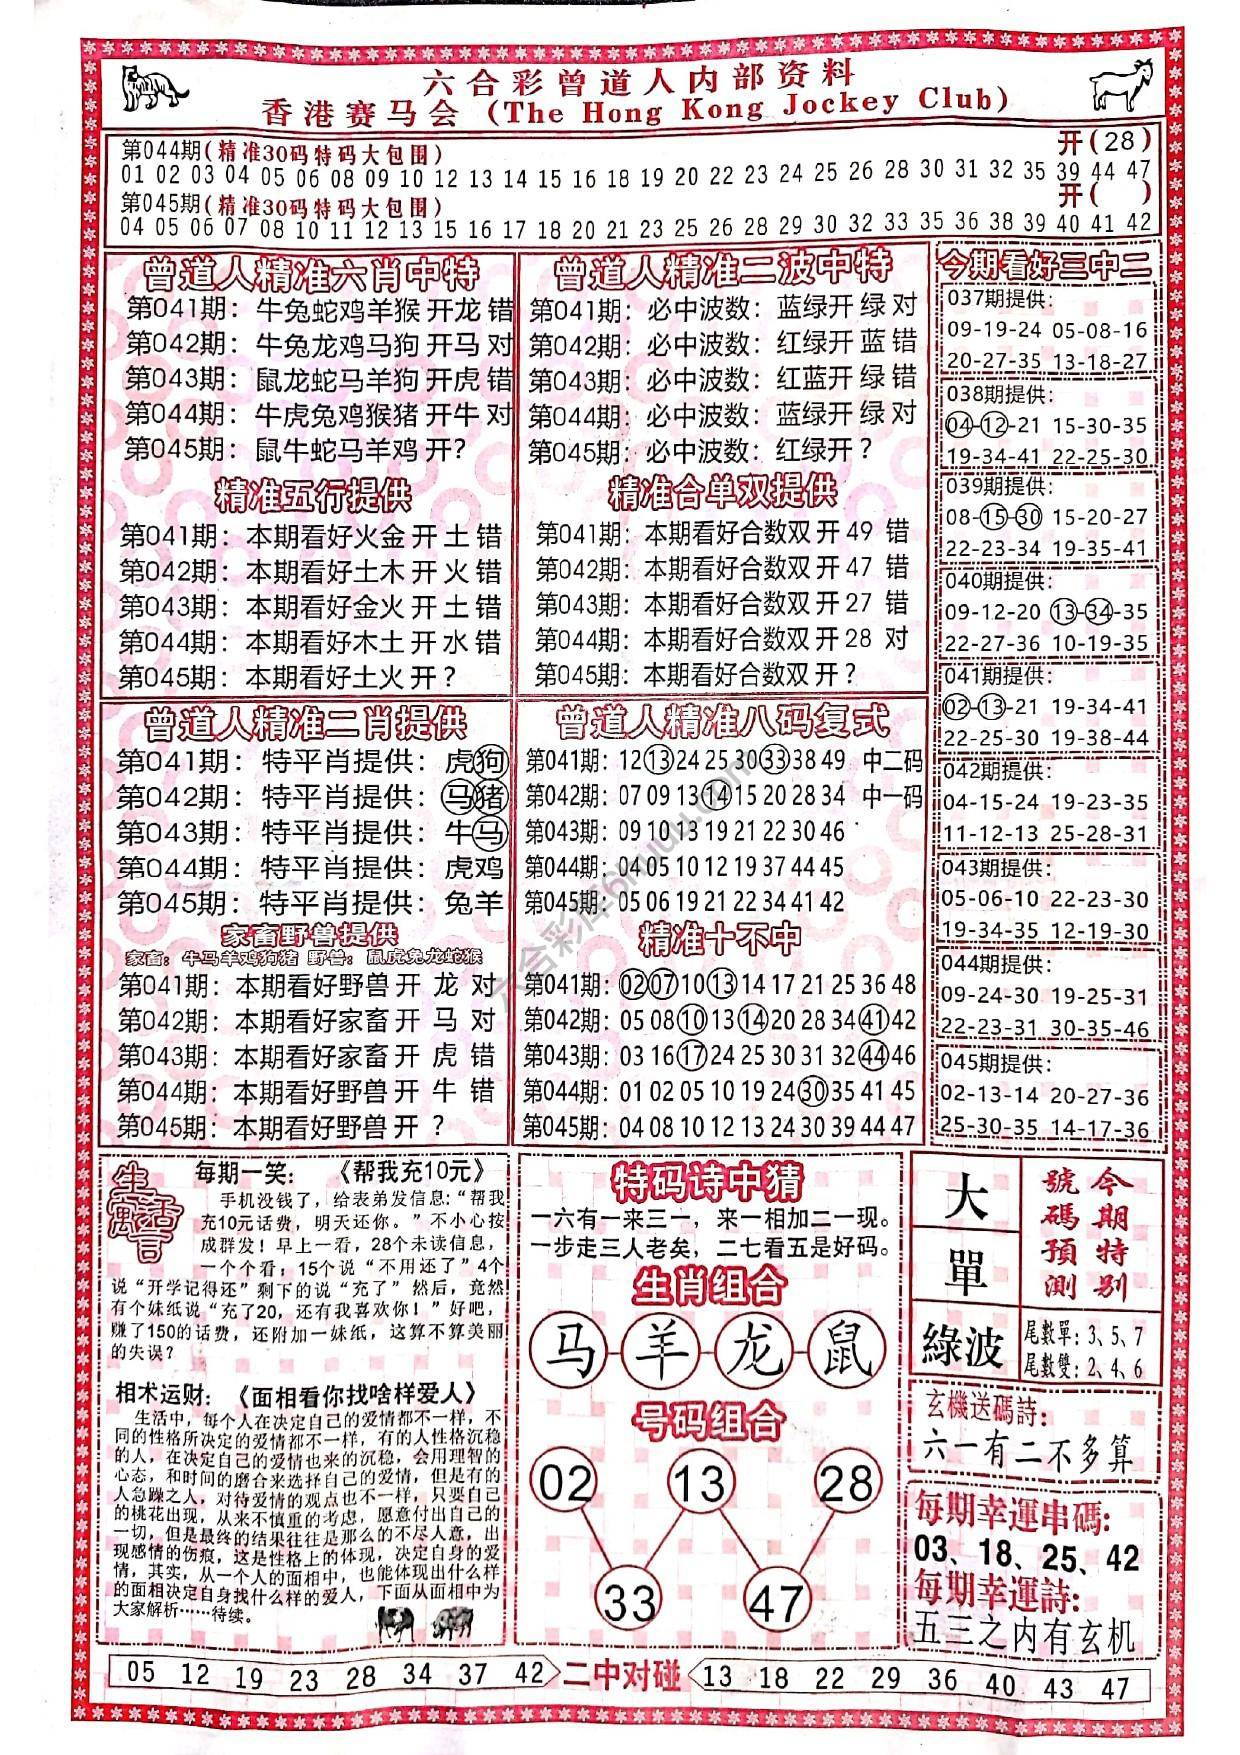 六合彩曾道人内部资料
香港赛马会 (The Hong Kong Jockey Club)
第044期(精准30码特码大包围) 开(28)
01 02 03 04 05 06 08 09 10 12 13 14 15 16 18 19 20 22 23 24 25 26 28 30 31 32 35 39 44 47
第045期(精准30码特码大包围) 开( )
04 05 06 07 08 10 11 12 13 15 16 17 18 20 21 23 25 27 28 29 30 32 33 35 36 38 39 40 41 42
曾道人精准六肖中特
第041期：牛兔蛇鸡羊猴 开龙 错
第042期：牛兔龙鸡马狗 开马 对
第043期：鼠龙蛇马羊狗 开虎 错
第044期：牛虎兔鸡猴猪 开牛 对
第045期：鼠牛蛇马羊鸡 开?
精准五行提供
第041期：本期看好火金 开 土 错
第042期：本期看好土木 开 火 错
第043期：本期看好金火 开 土 错
第044期：本期看好木土 开 水 错
第045期：本期看好土火 开 ?
曾道人精准二波中特
第041期：必中波数：蓝绿开 绿 对
第042期：必中波数：红绿开 蓝 错
第043期：必中波数：红蓝开 绿 错
第044期：必中波数：蓝绿开 绿 对
第045期：必中波数：红绿开 ?
精准合单双提供
第041期：本期看好合数双 开 49 错
第042期：本期看好合数双 开 47 错
第043期：本期看好合数双 开 27 错
第044期：本期看好合数双 开 28 对
第045期：本期看好合数双 开 ?
今期看好三中二
037期提供：
09-19-24 05-08-16
20-27-35 13-18-27
038期提供：
04-12-21 15-30-35
19-34-41 22-25-30
039期提供：
08-15-30 15-20-27
22-23-34 19-35-41
040期提供：
09-12-20 13-34-35
22-27-36 10-19-35
041期提供：
02-13-21 19-34-41
22-25-30 19-38-44
042期提供：
04-15-24 19-23-35
11-12-13 25-28-31
043期提供：
05-06-10 22-23-30
19-34-35 12-19-30
044期提供：
09-24-30 19-25-31
22-23-31 30-35-46
045期提供：
02-13-14 20-27-36
25-30-35 14-17-36
曾道人精准二肖提供
第041期：特平肖提供：虎狗
第042期：特平肖提供：马猪
第043期：特平肖提供：牛马
第044期：特平肖提供：虎鸡
第045期：特平肖提供：兔羊
家畜野兽提供
家畜：牛马羊鸡狗猪 野兽：鼠虎兔龙蛇猴
第041期：本期看好野兽 开 龙 对
第042期：本期看好家畜 开 马 对
第043期：本期看好家畜 开 虎 错
第044期：本期看好野兽 开 牛 错
第045期：本期看好野兽 开 ?
曾道人精准八码复式
第041期：12 13 24 25 30 33 38 49 中二码
第042期：07 09 13 14 15 20 28 34 中一码
第043期：09 10 13 19 21 22 30 46
第044期：04 05 10 12 19 37 44 45
第045期：05 06 19 21 22 34 41 42
精准十不中
第041期：02 07 10 13 14 17 21 25 36 48
第042期：05 08 10 13 14 20 28 34 41 42
第043期：03 16 17 24 25 30 31 32 44 46
第044期：01 02 05 10 19 24 30 35 41 45
第045期：04 08 10 12 13 24 30 39 44 47
生活寓言
每期一笑：《帮我充10元》
手机没钱了，给表弟发信息:“帮我
充10元话费，明天还你。”不小心按
成群发！早上一看，28个未读信息，
一个个看；15个说“不用还了”4个
说“开学记得还”剩下的说“充了”然后，竟然
有个妹纸说“充了20，还有我喜欢你！”好吧，
赚了150的话费，还附加一妹纸，这算不算美丽
的失误?
相术运财：《面相看你找啥样爱人》
生活中，每个人在决定自己的爱情都不一样，不
同的性格所决定的爱情都不一样，有的人性格沉稳
的人，在决定自己的爱情也来的沉稳，会用理智的
心态，和时间的磨合来选择自己的爱情，但是有的
人急躁之人，对待爱情的观点也不一样，只要自己
的桃花出现，从来不慎重的考虑，愿意付出自己的
一切，但是最终的结果往往是那么的不尽人意，出
现感情的伤痕，这是性格上的体现，决定自身的爱
情，其实，从一个人的面相中，也能体现出什么样
的面相决定自身找什么样的爱人，下面从面相中为
大家解析……待续。
特码诗中猜
一六有一来三一，来一相加二一现。
一步走三人老矣，二七看五是好码。
生肖组合
马 羊 龙 鼠
号码组合
02 13 28
33 47
大
單
綠波
今期特别
號碼預測
尾數單：3、5、7
尾數雙：2、4、6
玄機送碼詩：
六一有二不多算
每期幸運串碼：
03、18、25、42
每期幸運詩：
五三之内有玄机
05 12 19 23 28 34 37 42 二中对碰 13 18 22 29 36 40 43 47